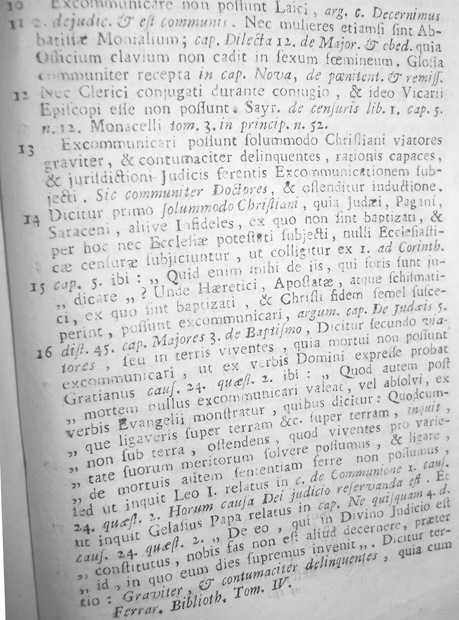 10 Excommunicare non possunt Laici, arg. c. Decernimus
11 2. de judic. & est communis. Nec mulieres etiamsi sint Ab-
batissæ Monialium; cap. Dilecta 12. de Major. & obed. quia
Officium clavium non cadit in sexum fœmineum. Glossa
communiter recepta in cap. Nova, de pœnitent. & remiss.
12 Nec Clerici conjugati durante conjugio, & ideo Vicarii
Episcopi esse non possunt. Sayr. de censuris lib. 1. cap. 5.
n. 12. Monacelli tom. 3. in princip. n. 52.
13 Excommunicari possunt solummodo Christiani viatores
graviter, & contumaciter delinquentes, rationis capaces,
& jurisdictioni Judicis ferentis Excommunicationem sub-
jecti. Sic communiter Doctores, & ostenditur inductione.
14 Dicitur primo solummodo Christiani, quia Judæi, Pagini,
Saraceni, aliive Infideles, ex quo non sint baptizati, &
per hoc nec Ecclesiæ potestati subjecti, nulli Ecclesiasti-
cæ censuræ subjiciuntur, ut colligitur ex 1. ad Corinth.
15 cap. 5. ibi: „ Quid enim mihi de iis, qui foris sunt ju-
„ dicare „? Unde Hæretici, Apostatæ, atque schismati-
ci, ex quo sint baptizati, & Christi fidem semel susce-
perint, possunt excommunicari, argum. cap. De Judæis 5.
16 dist. 45. cap. Majores 3. de Baptismo, Dicitur secundo via-
tores, seu in terris viventes, quia mortui non possunt
excommunicari, ut ex verbis Domini expresse probat
Gratianus caus. 24. quæst. 2. ibi: „ Quod autem post
„ mortem nullus excommunicari valeat, vel absolvi, ex
verbis Evangelii monstratur, quibus dicitur: Quodcum-
„ que ligaveris super terram &c. super terram, inquit,
„ non sub terra, ostendens, quod viventes pro varie-
„ tate suorum meritorum solvere possumus, & ligare,
„ de mortuis autem sententiam ferre non possumus,
sed ut inquit Leo I. relatus in c. de Communione 1. caus.
24. quæst. 2. Horum causa Dei judicio reservanda est. Et
ut inquit Gelasius Papa relatus in cap. Ne quisquam 4. d.
caus. 24. quæst. 2. „ De eo, qui in Divino Judicio est
„ constitutus, nobis fas non est aliud decernere, præter
„ id, in quo eum dies supremus invenit „. Dicitur ter-
tio: Graviter, & contumaciter delinquentes, quia cum
Ferrar. Biblioth. Tom. IV.